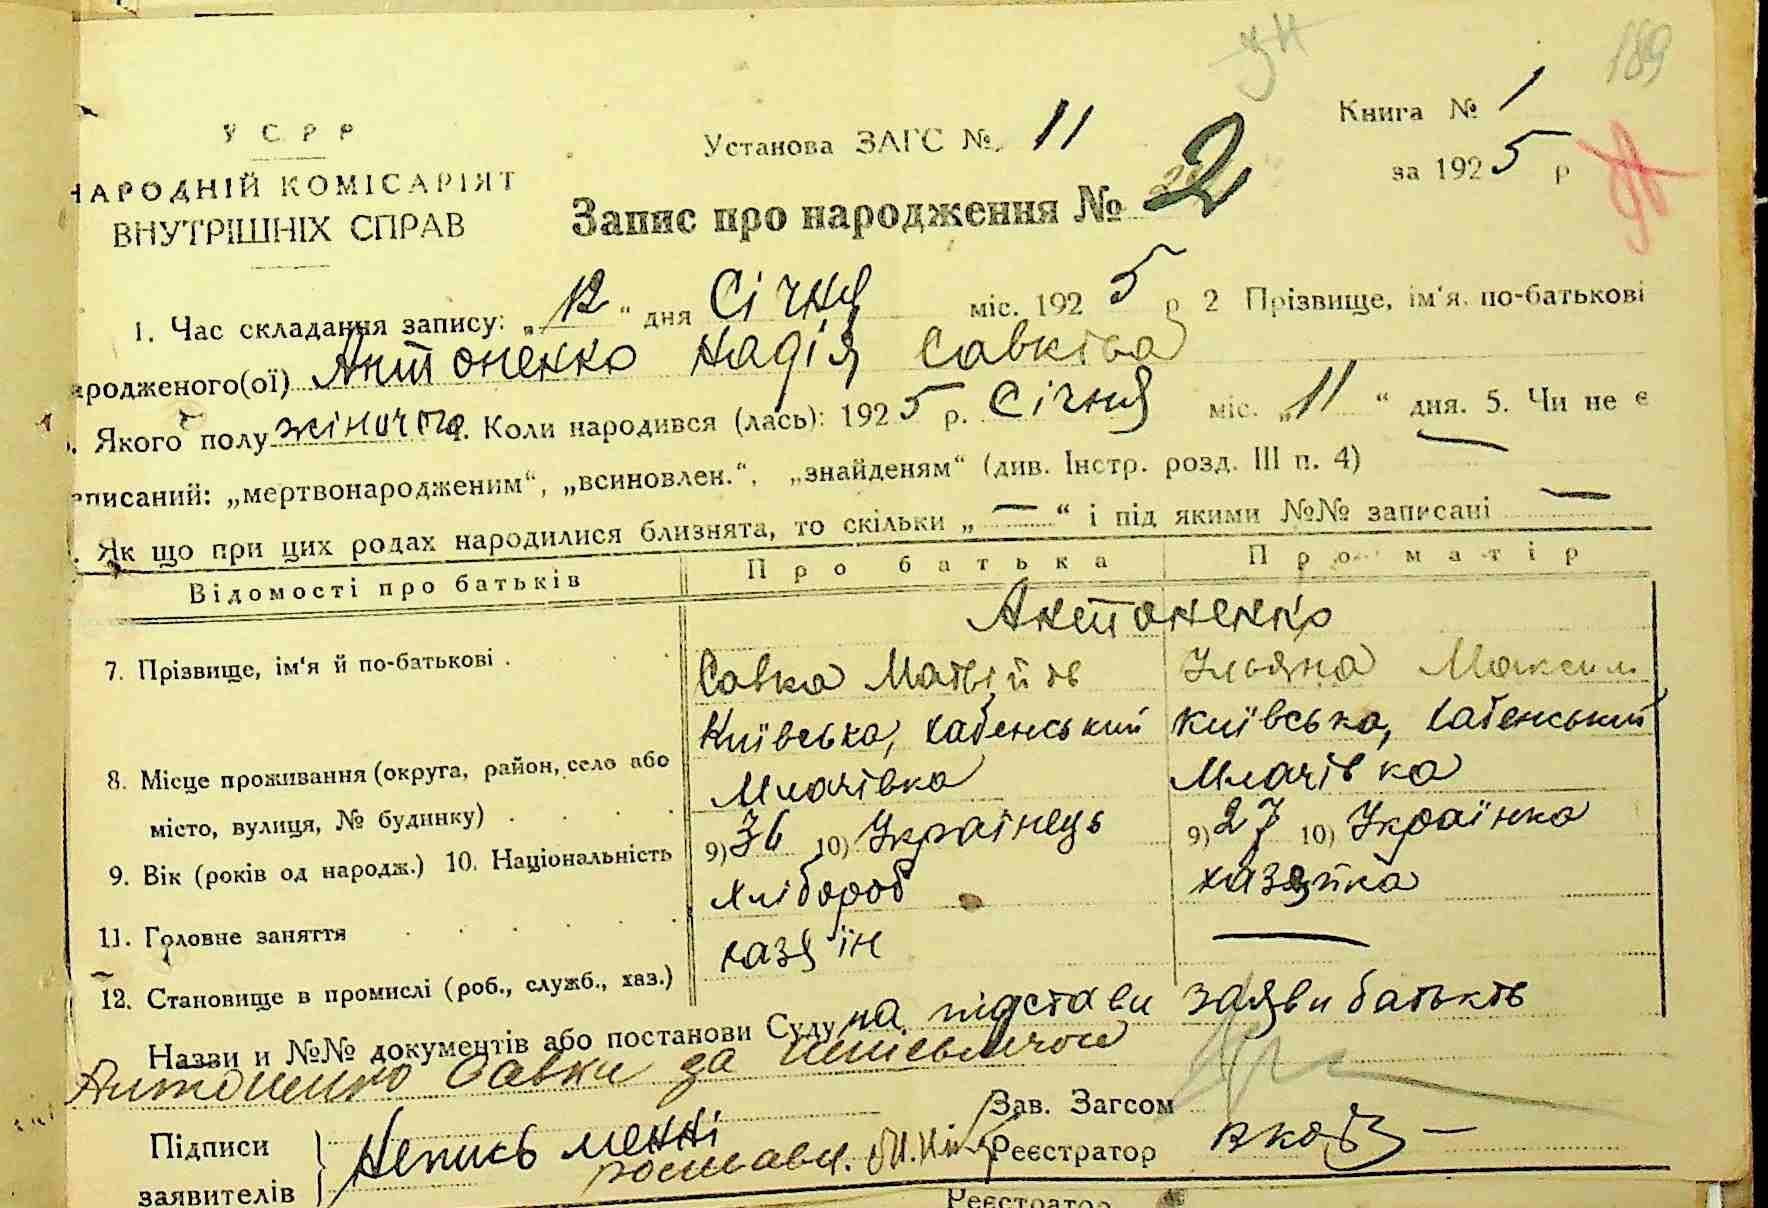 189
У С Р Р
НАРОДНІЙ КОМІСАРІЯТ
ВНУТРІШНІХ СПРАВ
Установа ЗАГС № 11
Книга № 1
за 1925 р
Запис про народження № 2
1. Час складання запису: „12“ дня Січня міс. 1925 р 2 Прізвище, ім'я, по-батькові
ародженого(ої) Антоненко Надія Савківа
. Якого полу жіночого. Коли народився (лась): 1925 р. Січня міс. „11“ дня. 5. Чи не є
аписаний: „мертвонародженим“, „всиновлен.“, „знайденям“ (див. Інстр. розд. III п. 4) —
. Як що при цих родах народилися близнята, то скільки „—“ і під якими №№ записані —
Відомості про батьків Про батька Про матір
Антоненко
7. Прізвище, ім'я й по-батькові . Савка Матвійів Ульяна Максим
8. Місце проживання (округа, район, село або Київська, Хабенський Київська, Хабенський
місто, вулиця, № будинку) Млачівка Млачівка
9. Вік (років од народж.) 10. Національність 9) 36 10) Українець 9) 27 10) Українка
11. Головне заняття Хлібороб хазяйка
12. Становище в промислі (роб., служб., хаз.) хазяїн —
Назви и №№ документів або постанови Суду на підстави заяви батьків
Антоненко Савки за
Зав. Загсом
Підписи
заявителів
Неписьменні
Реєстратор
Реєстратор